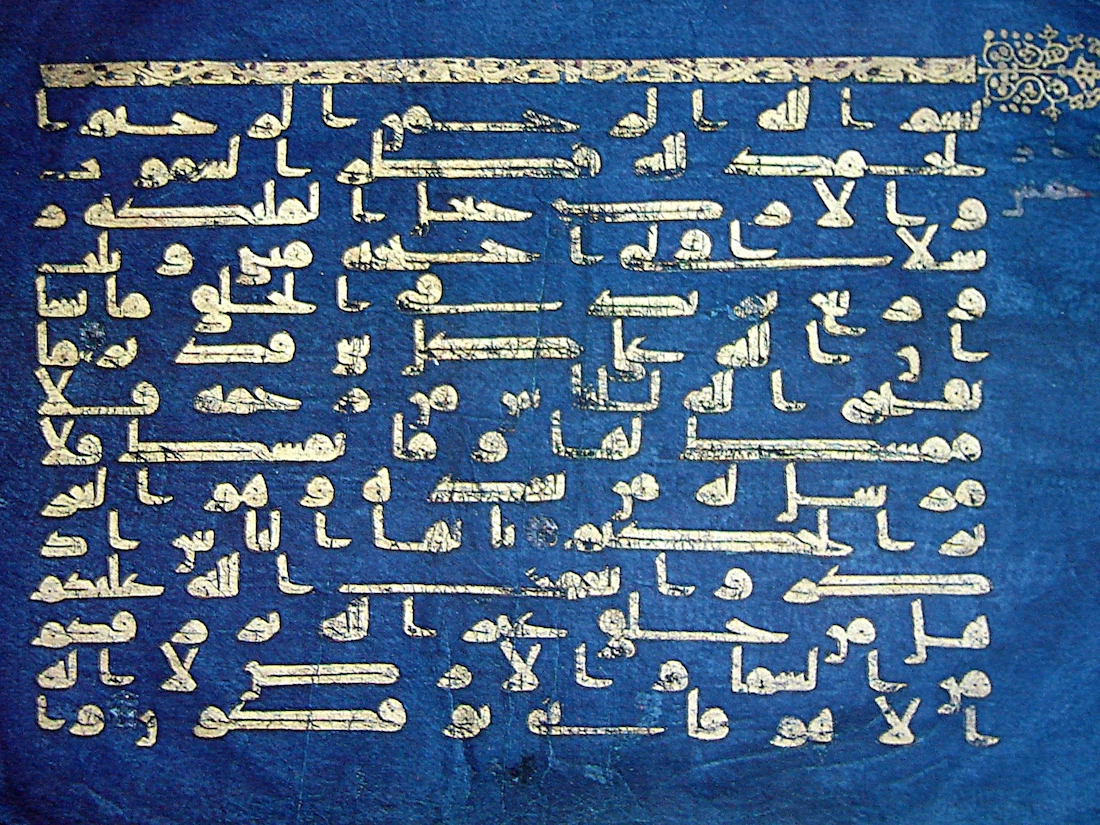 بسم الله الرحمن الرحيم ا
لحمد لله فطر السمو ت
و الا رض جعل الملئكة ر
سلا اولى اجنحة مثنى و ثلث
و ربع يزيد فى الخلق ما يشا
ا ن الله على كل شى قدير ما
يفتح الله للناس من رحمة فلا
ممسك لها و ما يمسك فلا
مرسل له من بعده و هو العز
يز الحكيم يا يها الناس اذ
كر وا نعمت الله عليكم
هل من خلق غير الله يرزقكم
من السما و الا رض لا اله
الا هو فا نى توفكو ن و ا